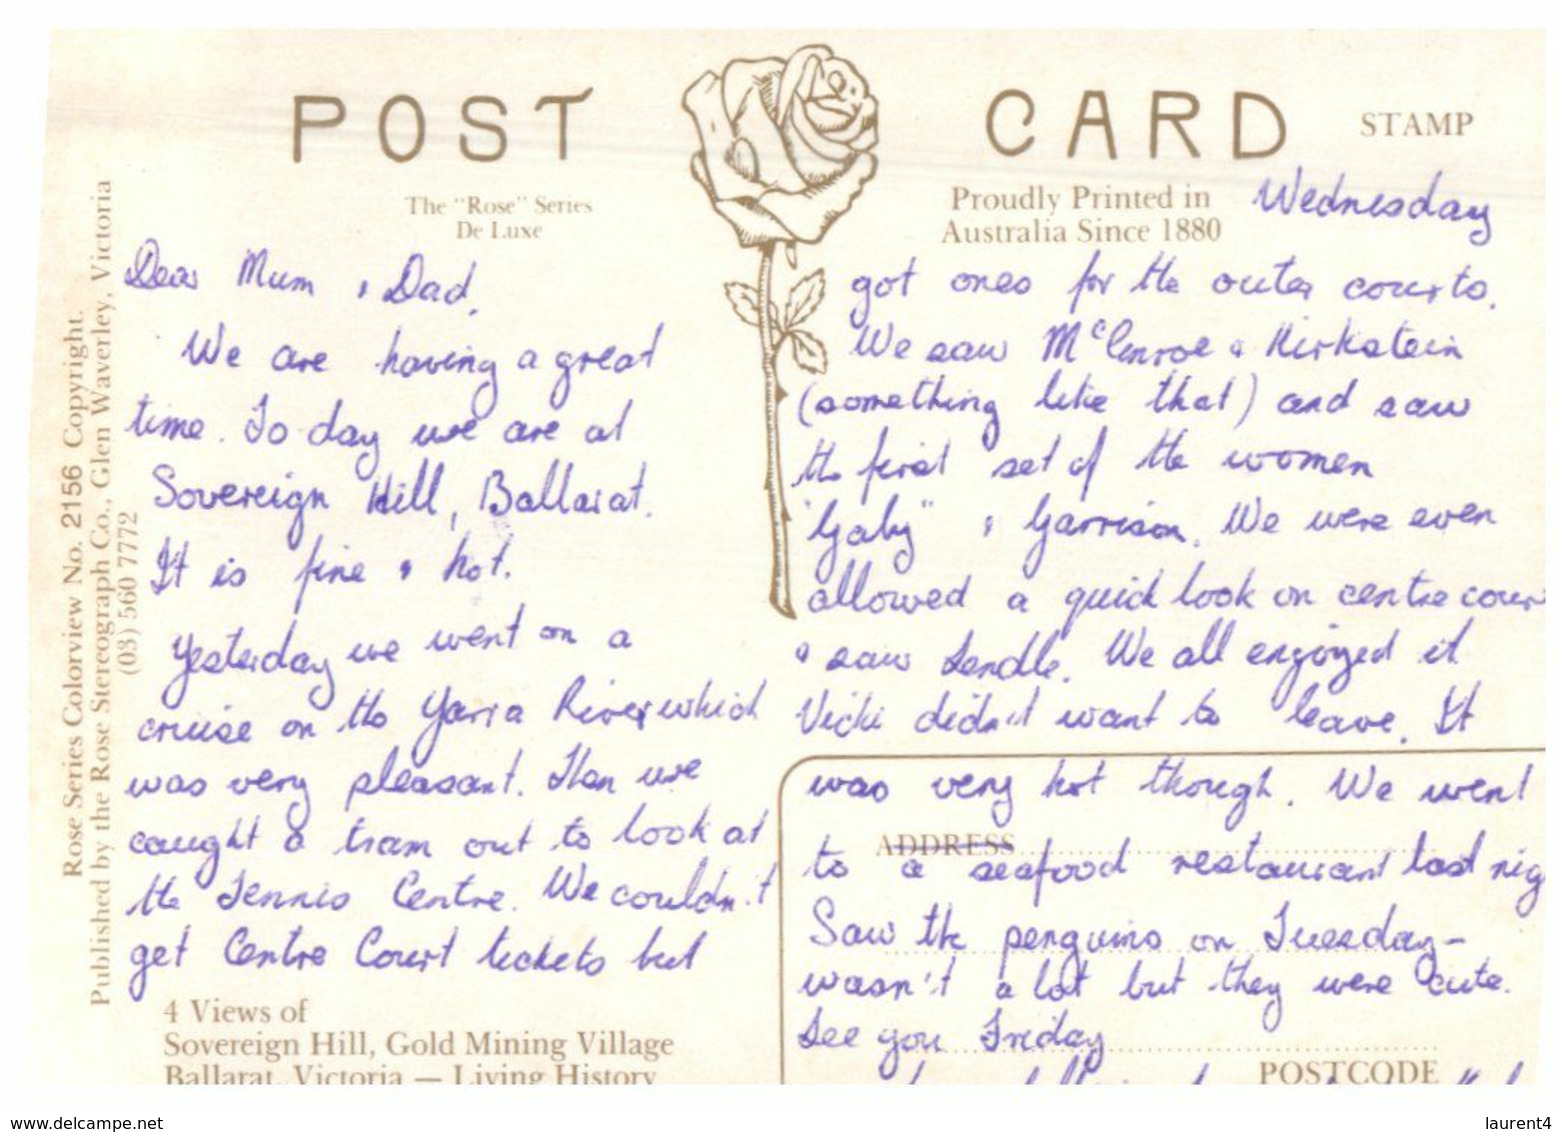 POST CARD
STAMP
The "Rose" Series
De Luxe
Proudly Printed in
Australia Since 1880
Rose Series Colorview No. 2156 Copyright.
Published by the Rose Stereograph Co., Glen Waverley, Victoria
(03) 560 7772
Wednesday
Dear Mum & Dad,
We are having a great
time. To day we are at
Sovereign Hill, Ballarat.
It is fine & hot.
Yesterday we went on a
cruise on the Yarra River which
was very pleasant. Then we
caught a tram out to look at
the Tennis Centre. We couldn't
get Centre Court tickets but
got ones for the outer courts.
We saw McEnroe & Kirkstein
(something like that) and saw
the first set of the women
"Gaby" & Garrison. We were even
allowed a quick look on centre cour
& saw Lendle. We all enjoyed it
Vicki didn't want to leave. It
was very hot though. We went
ADDRESS
to a seafood restaurant last nig
Saw the penguins on Tuesday-
wasn't a lot but they were cute.
See you Friday
POSTCODE
4 Views of
Sovereign Hill, Gold Mining Village
Ballarat, Victoria — Living History
www.delcampe.net
laurent4